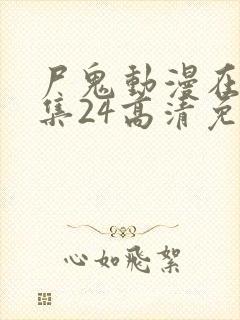 尸鬼動漫在
集24高清免
心如飛絮